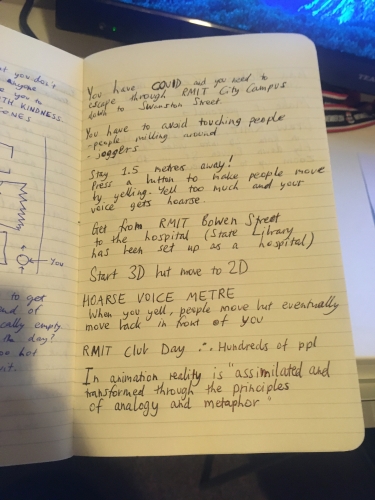 t you don't
anyone
you to
TH KINDNESS
ONES
You
to get
nd of
cally empty
the day?
oo hot
nt.
You have COVID and you need to
escape through RMIT City Campus
down to Swanston Street.
You have to avoid touching people
- people milling around
- joggers
Stay 1.5 metres away!
Press a button to make people move
by yelling. Yell too much and your
voice gets hoarse.
Get from RMIT Bowen Street
to the hospital (State Library
has been set up as a hospital)
Start 3D but move to 2D
HOARSE VOICE METRE
When you yell, people move but eventually
move back in front of you
RMIT Club Day ∴ Hundreds of ppl
In animation reality is "assimilated and
transformed through the principles
of analogy and metaphor"